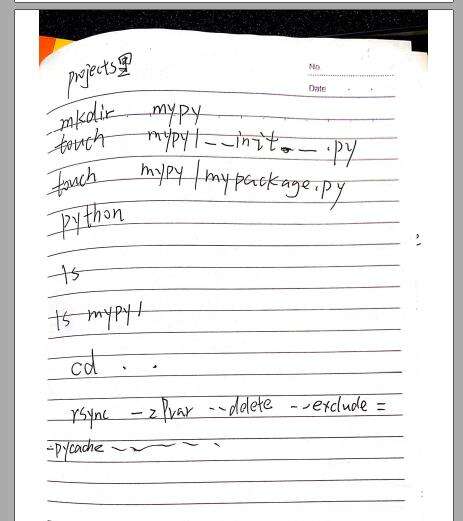 projects里
No
Date
mkdir mypy
touch mypy/__init__.py
touch mypy/mypackage.py
python
ls
ls mypy/
cd ..
rsync -zPvar --ddete --exclude =
-pycache